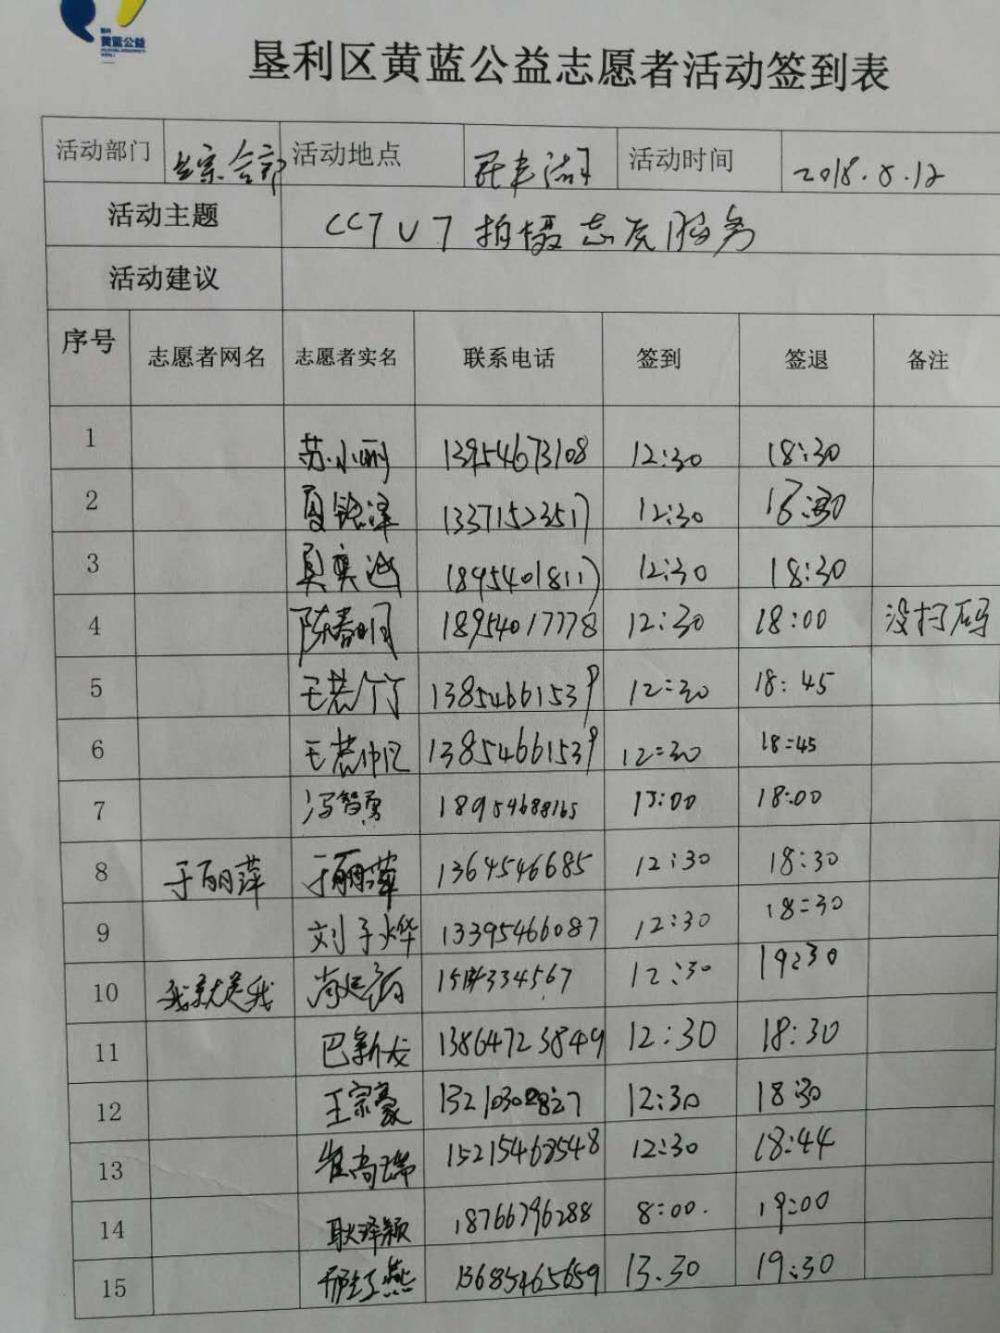 黄蓝公益
垦利区黄蓝公益志愿者活动签到表
活动部门 综合部 活动地点 活动时间 2018.5.12
活动主题 CCTV7拍摄志愿服务
活动建议
序号 志愿者网名 志愿者实名 联系电话 签到 签退 备注
1 苏小丽 13954673108 12:30 18:30
2 13371523517 12:30 18:30
3 18954018117 12:30 18:30
4 陈春明 18954017778 12:30 18:00 没扫码
5 13854661539 12:30 18:45
6 13854661539 12:30 18:45
7 冯智勇 18954688165 13:00 18:00
8 于丽萍 于丽萍 1364546685 12:30 18:30
9 刘子烨 13395466087 12:30 18:30
10 我就是我 12:30 19:30
11 巴新龙 13864723849 12:30 18:30
12 王宗豪 12:30 18:30
13 崔高瑞 15215468548 12:30 18:44
14 耿泽颖 18766796288 8:00. 19:00
15 邢红燕 13685465659 13.30 19:30